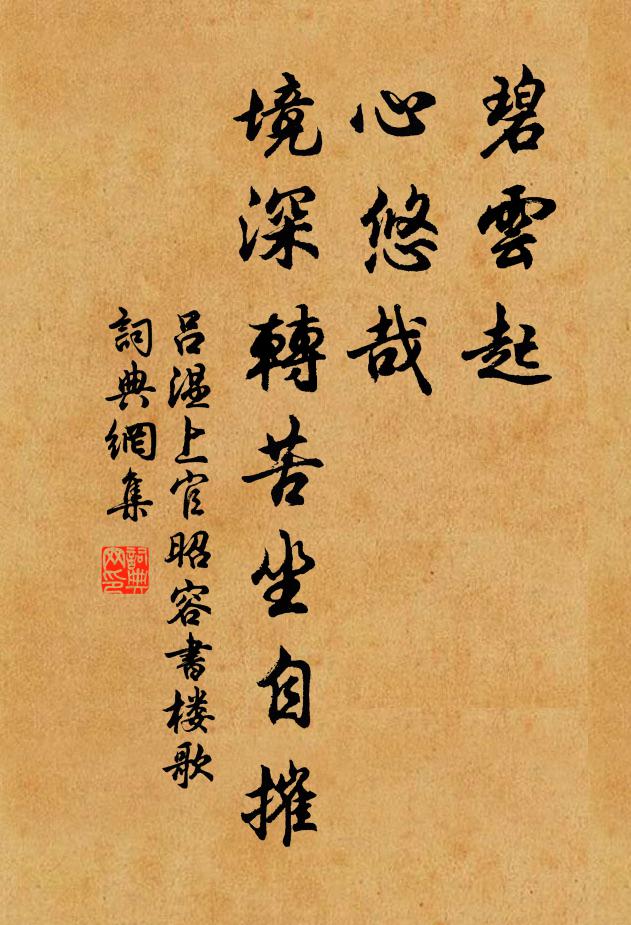 碧雲起
心悠哉
境深轉苦坐自摧
呂溫上官昭容書楼歌
詞典網集
詞典
網印